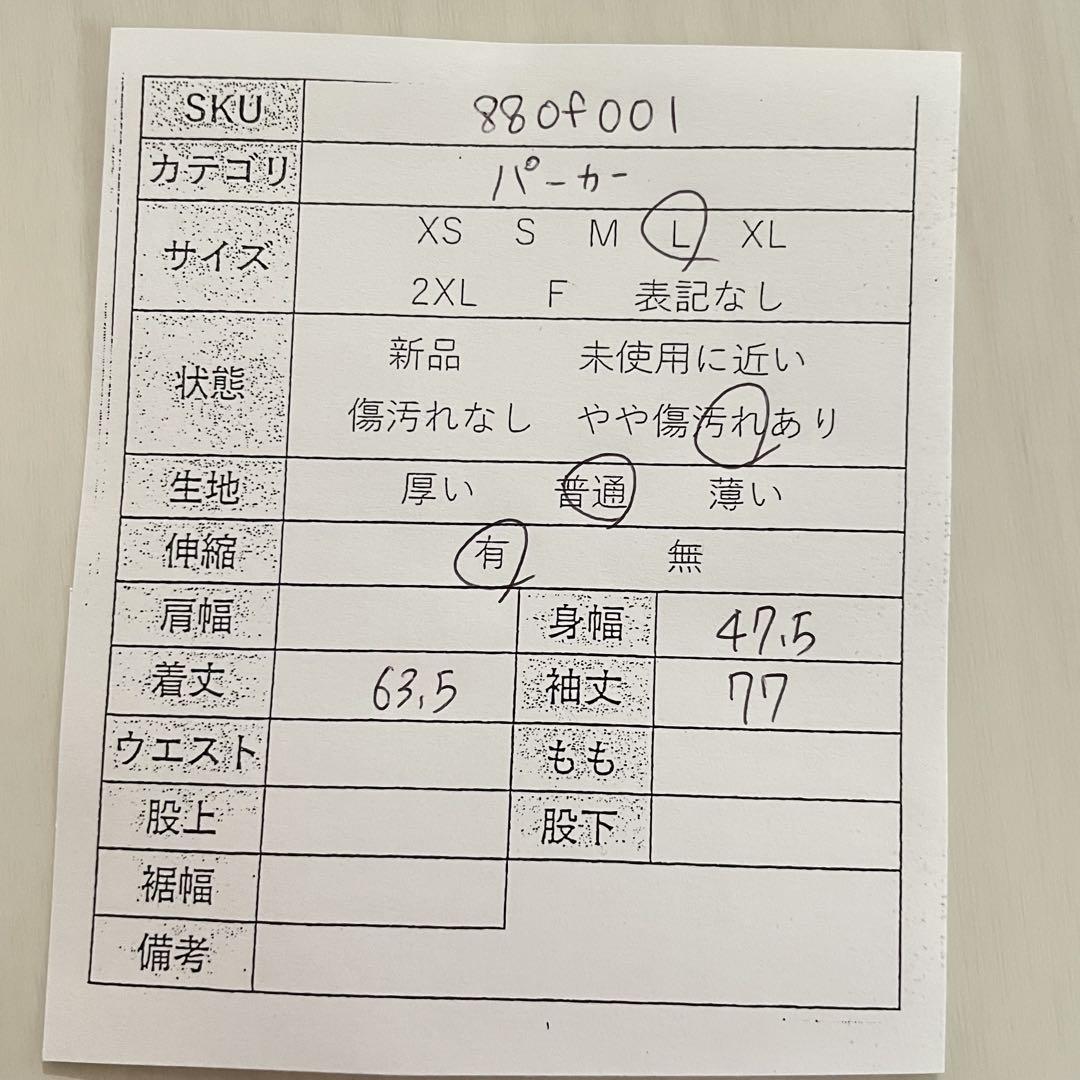 SKU 880f001
カテゴリ パーカー
サイズ XS S M L XL
2XL F 表記なし
状態 新品 未使用に近い
傷汚れなし やや傷汚れあり
生地 厚い 普通 薄い
伸縮 有 無
肩幅 身幅 47.5
着丈 63.5 袖丈 77
ウエスト もも
股上 股下
裾幅
備考